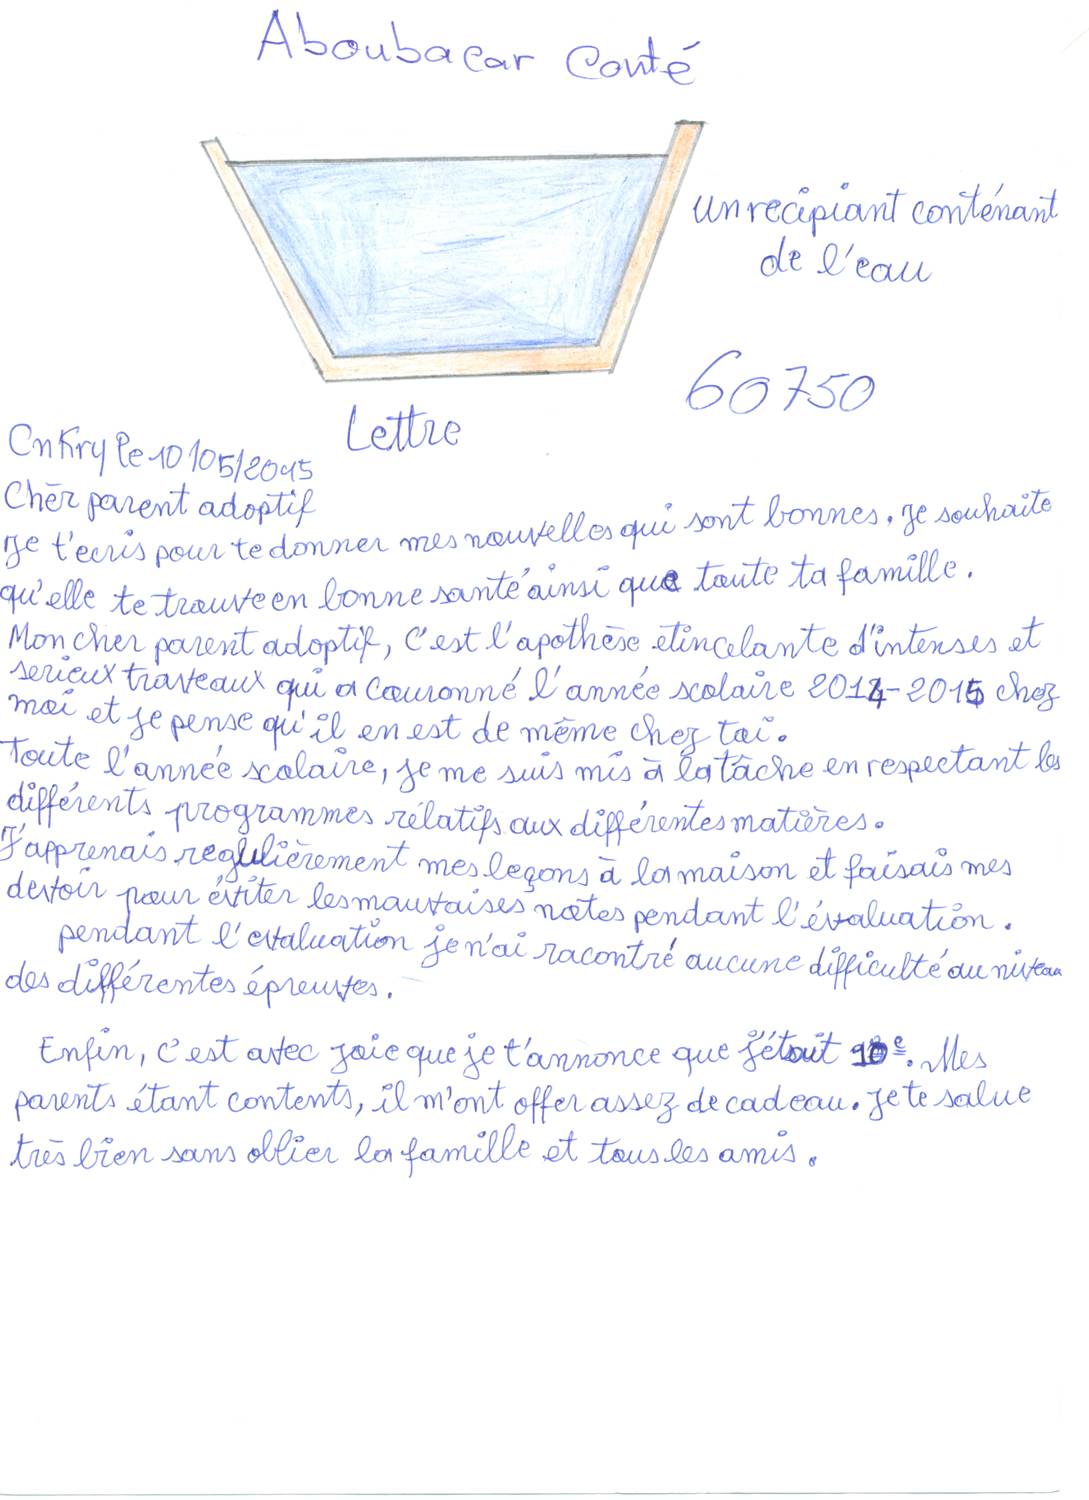 Aboubacar Conté
un recipiant conténant
de l'eau
60750
Lettre
CnKry le 10/05/2015
Chèr parent adoptif
Je t'ecris pour te donner mes nouvelles qui sont bonnes. Je souhaite
qu'elle te trouve en bonne santé ainsi que toute ta famille.
Mon cher parent adoptif, C'est l'apothèse etincelante d'intenses et
serieux traveaux qui a couronné l'année scolaire 2014-2015 chez
moi et je pense qu'il en est de même chez toi.
Toute l'année scolaire, je me suis mis à la tâche en respectant les
différents programmes rélatifs aux différentes matières.
J'apprenais regulièrement mes leçons à la maison et faisais mes
devoir pour éviter les mauvaises notes pendant l'évaluation.
pendant l'evaluation je n'ai racontré aucune difficulté au niveau
des différentes épreuves.
Enfin, c'est avec joie que je t'annonce que j'était 10e. Mes
parents étant contents, il m'ont offer assez de cadeau. Je te salue
très bien sans oblier la famille et tous les amis.